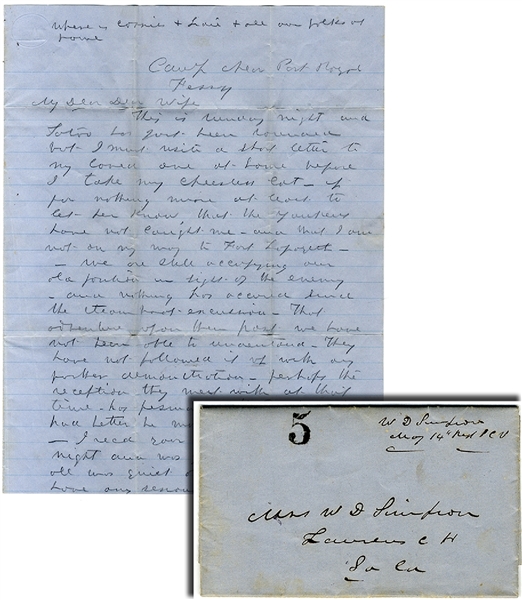 where is Connies & & all our folks at
home
Camp Near Port Royal
Ferry
My Dear Dear Wife
This is Sunday night and
Tatoo has just been sounded
but I must write a short letter to
my loved one at home before
I take my cheerless Cot – if
for nothing more at least to
let her know, that the Yankees
have not caught me – and that I am
not on my way to Fort
– we are still occupying our
old position in sight of the enemy
– and nothing has occured since
the steam boat excursion – That
adventure upon their part we have
not been able to understand – They
have not followed it up with any
further demonstration – perhaps the
reception they met with at that
time has
had better be
– I recd your
night and was
all was quiet
have any
5
W D Simpson
Maj 14th Regt S C V
Mrs W D Simpson
Laurens C H
So Ca